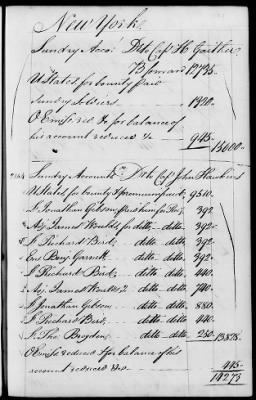 New York
Sundry Acco. Dr to Cap H Gaither
Bowman 12735
U States for bounty paid
Sundry Soldiers 1320
O Emiss red & for balance of
his account reduced &c 945
15000
Sundry Accounts Dr to Cap John Hawkins
U States for bounty & premium paid 9510
L Jonathan Gibson paid him for Ser 392
Adj James Woulds for ditto ditto 392
L Richard Bird ditto ditto 392
Ens Benj Garnick ditto ditto 392
L Richard Bird ditto ditto 440
Adj James Woulds ditto ditto 740
L Jonathan Gibson ditto ditto 880
L Richard Bird ditto ditto 440
L Tho Brogden ditto ditto 250 13828
O Emiss reduced & for balance of his
account reduced &c 445
14273